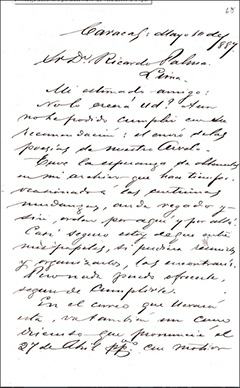 Caracas: Mayo 10 de 1887
Sr. Dr. Ricardo Palma.
Lima.
Mi estimado amigo:
No lo creerá Ud? Aun
no he podido cumplir con su
recomendación: el envío de las
poesías de nuestro
Tuve la esperanza de obtenerlas
en mi archivo que han tiempo,
ocasionado a las continuas
mudanzas, anda regado y
sin orden por aquí y por allá.
Casi seguro estoy de que entre
mis papeles, si pudiera
y organizarlos, las encontraría.
Pero nada puedo ofrecerle,
seguro de cumplirlo.
En el correo que llevará
esta, va también un
discurso que pronuncié el
27 de Abril con motivo